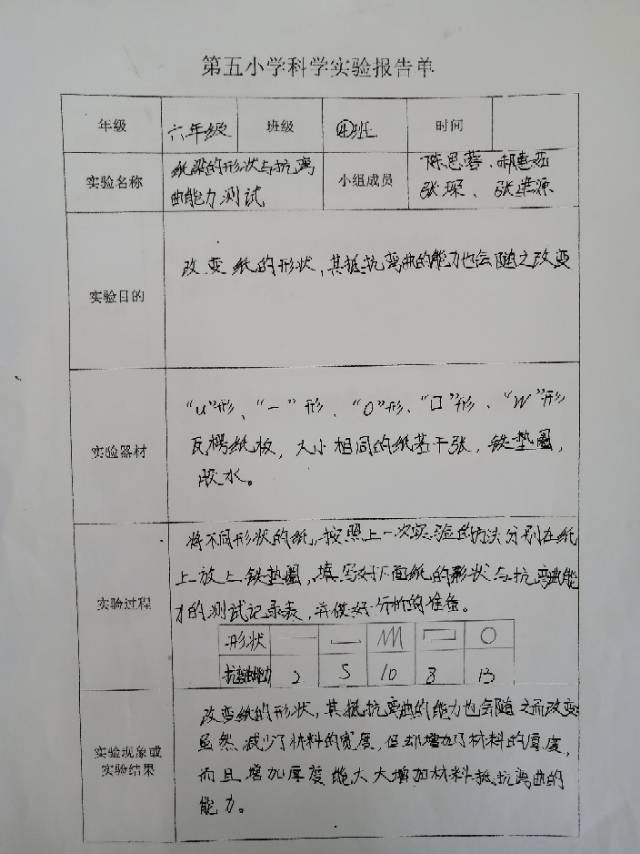 第五小学科学实验报告单
年级 六年级 班级 四班 时间
实验名称 纸梁的形状与抗弯曲能力测试 小组成员 陈思蓉、郝
张琛、张
实验目的 改变纸的形状,其抵抗弯曲的能力也会随之改变
实验器材 “u”形、“一”形、“O”形、“口”形、“W”形
瓦楞纸板,大小相同的纸若干张,铁垫圈,
胶水。
实验过程 将不同形状的纸,按照上一次实验的方法分别在纸
上放上铁垫圈,填写好下面纸的形状与抗弯曲能
力的测试记录表,并做好分析的准备。
形状
抗弯曲能力 2 5 10 8 13
实验现象或实验结果 改变纸的形状,其抵抗弯曲的能力也会随之而改变
虽然减少了材料的宽度,但却增加了材料的厚度,
而且增加厚度能大大增加材料抵抗弯曲的
能力。